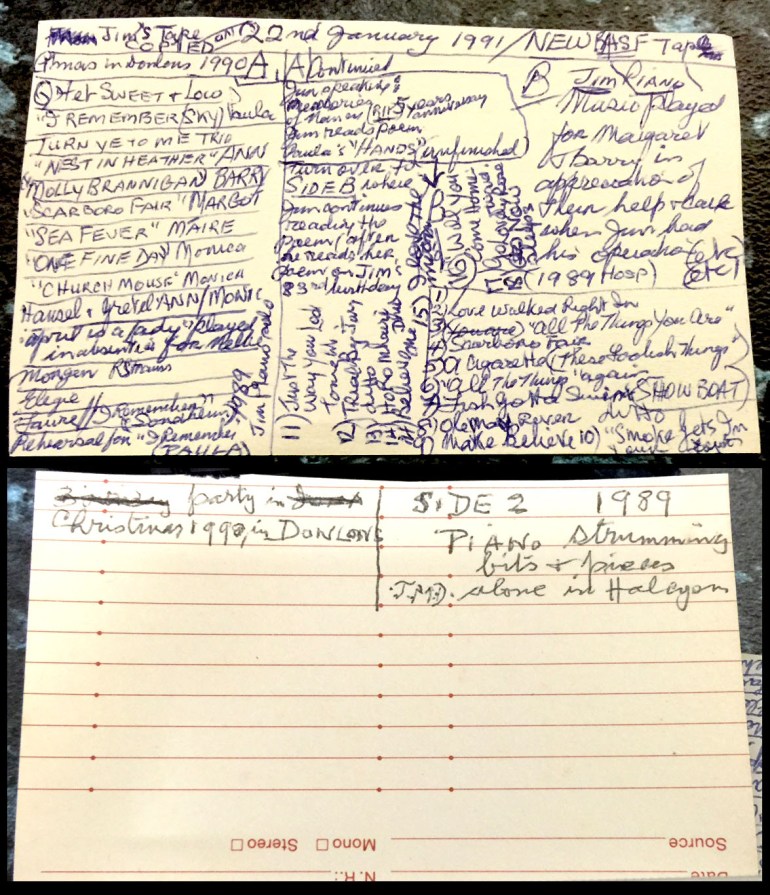 Jim's Tape on 22nd January 1991/NEW BASF Tape
COPIED
Xmas in Donlons 1990 A
Qrtet SWEET + LOW
"I REMEMBER (SKY) Paula
TURN YE TO ME TRIO
"NEST IN HEATHER" ANN
MOLLY BRANNIGAN) BARRY
"SCARBORO FAIR" MARGOT
"SEA FEVER" MAIRE
"ONE FINE DAY Monica
"CHURCH MOUSE" MONICA
Hansel + Gretel ANN/MONIC
"April is a lady" played
in absentia for
Morgen R Strauss
Elegie
Faure // I Remember"
Sondheim
Rehearsal for "I Remember
(PAULA)
1989
Jim Piano
A Continued
Jim speaking:
Memories
of Mamas (RIP) 5 years
anniversary
Jim reads poem
Paula's "HANDS" (unfinished)
Turn over to
SIDE B where
Jim continues
reading the
poem (after
he reads her
poem on Jim's
83rd birthday
11) Just The
Way You Look
Tonight
12) Trial By Jury
13) ditto
15) I have The
16) Will You
Come Home
17) Go Lovely Rose
18) Now
Sleeps
B JIM PIANO
Music played
for Margaret
& Barry in
appreciation of
their help & care
when Jim had
his operation (etc)
(1989 HOSP) (etc)
Love Walked Right In
"All The Things You Are"
Scarboro Fair
A Cigarette (These Foolish Things"
"All The Things" again
Fish Gotta Swim (SHOW BOAT)
8) Ole Man River ditto
9) Make Believe 10) "Smoke Gets In
Your Eyes
party in
Christmas 1990, in DONLONS
SIDE 2 1989
PIANO strumming
bits + pieces
alone in Halcyon
Source
Mono Stereo
Date
N.R.: